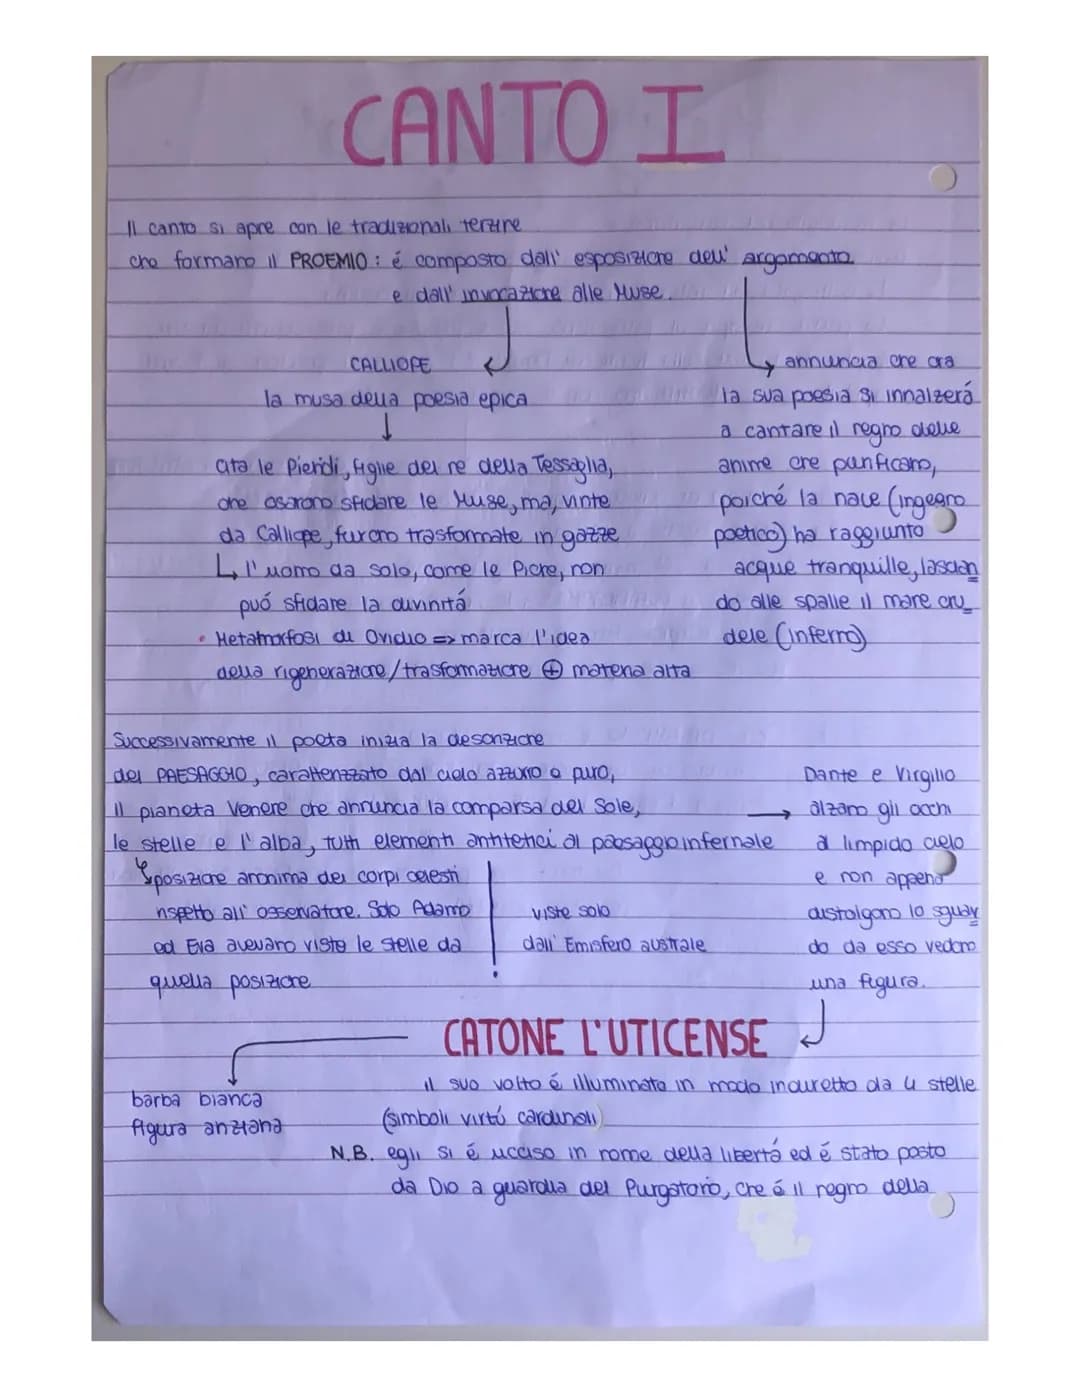 CANTO I
Il canto si apre con le tradizionali terzine
che formano il PROEMIO: é composto dall' esposizione dell' argomento
e dall' invocazione alle Muse.
CALLIOPE
la musa della poesia epica
cita le Pieridi, figlie del re della Tessaglia,
che osarono sfidare le Muse, ma, vinte
da Calliope, furono trasformate in gazze
l'uomo da solo, come le Piche, non
puó sfidare la divinitá
• Metamorfosi di Ovidio => marca l'idea
della rigenerazione/trasformazione ⊕ materia alta
annuncia che ora
la sua poesia si innalzerá
a cantare il regno delle
anime che purificano,
poiché la nave (ingegno
poetico) ha raggiunto
acque tranquille, lascian
do alle spalle il mare cru_
dele (inferno)
Successivamente il poeta inizia la descrizione
del PAESAGGIO, caratterizzato dal cielo azzurro e puro,
il pianeta Venere che annuncia la comparsa del Sole,
le stelle e l'alba, tutti elementi antitetici al paesaggio infernale
posizione anonima dei corpi celesti
rispetto all' osservatore. Solo Adamo
ed Eva avevano visto le stelle da
quella posizione
viste solo
dall' Emisfero australe
Dante e Virgilio
alzano gli occhi
al limpido cielo
e non appena
distolgono lo sguar
do da esso vedono
una figura.
CATONE L'UTICENSE
barba bianca
figura anziana
il suo volto é illuminato in modo indiretto da 4 stelle
(simboli virtú cardinali)
N.B. egli si é ucciso in nome della libertá ed é stato posto
da Dio a guardia del Purgatorio, che é il regno della